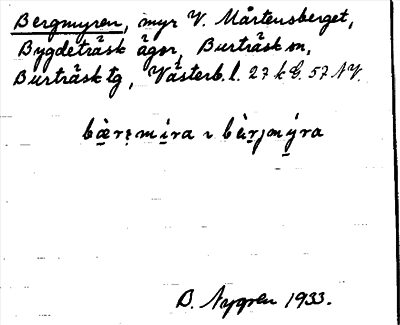 Bergmyren, myr V. Mårtensberget,
Bygdeträsk ägor, Burträsk sn,
Burträsk tg, Västerb. l. 27 k G. 57 NV.
B. Nygren 1933.